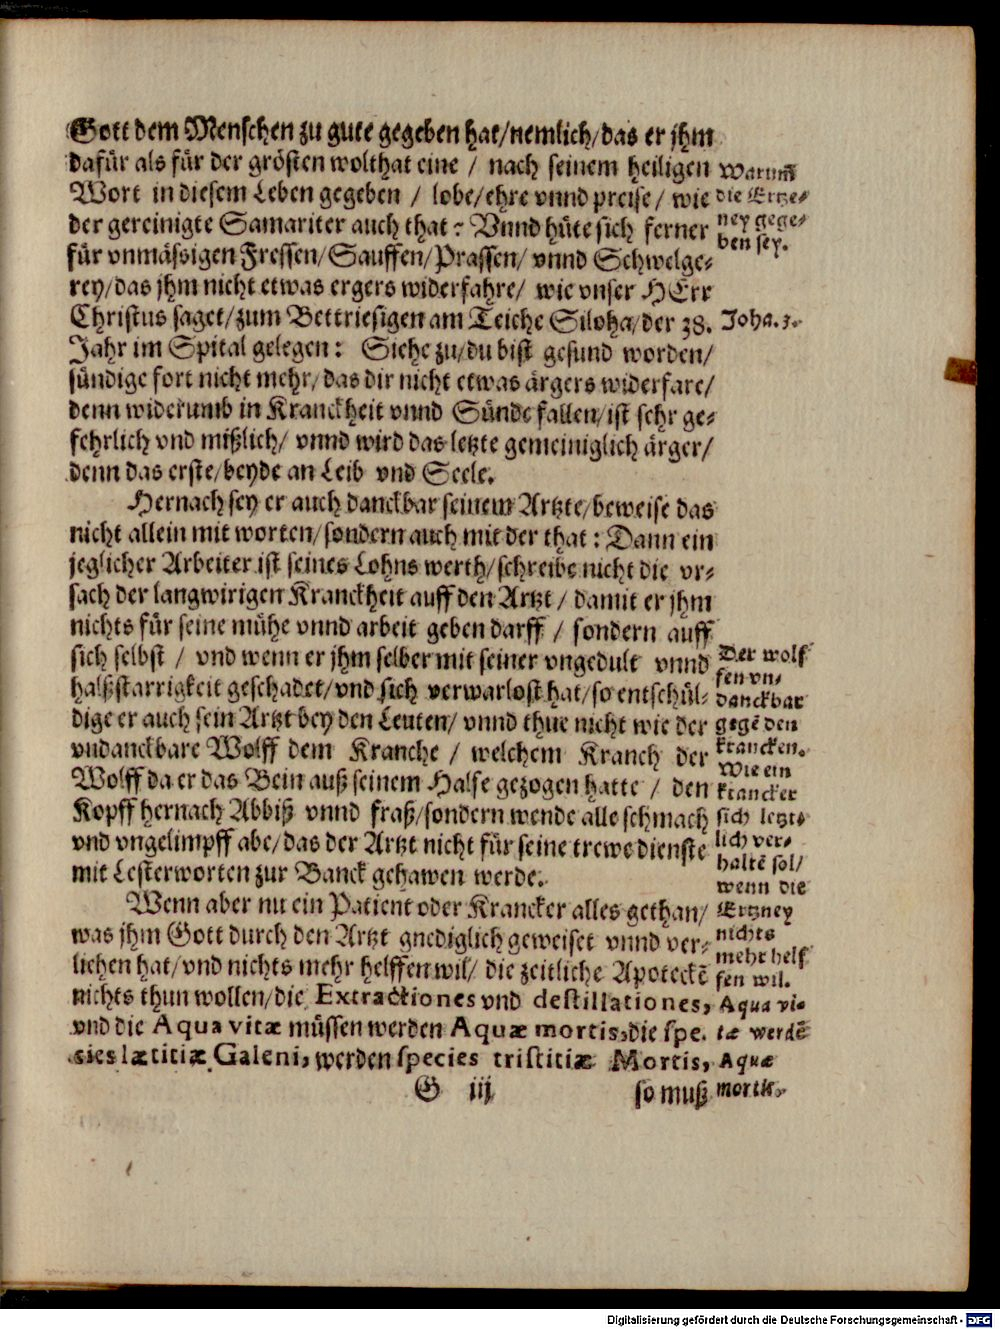 Gott dem Menschen zu gute gegeben hat/nemlich/das er jhm
dafür als für der grösten wolthat eine / nach seinem heiligen
Wort in diesem Leben gegeben / lobe/ehre vnnd preise / wie
der gereinigte Samariter auch that: Vnnd hüte sich ferner
für vnmässigen Fressen/Sauffen/Prassen/ vnnd Schwelge-
rey/das jhm nicht etwas ergers widerfahre/ wie vnser HErr
Christus saget/zum Bettriesigen am Teiche Siloha/der 38.
Jahr im Spital gelegen: Siehe zu/du bist gesund worden/
sündige fort nicht mehr/das dir nicht etwas ärgers widerfare/
denn widerumb in Kranckheit vnnd Sünde fallen/ist sehr ge-
fehrlich vnd mißlich/ vnnd wird das letzte gemeiniglich ärger/
denn das erste/beyde an Leib vnd Seele.
Hernach sey er auch danckbar seinem Artzte/beweise das
nicht allein mit worten/sondern auch mit der that: Dann ein
jeglicher Arbeiter ist seines Lohns werth/schreibe nicht die vr-
sach der langwirigen Kranckheit auff den Artzt / damit er jhm
nichts für seine mühe vnnd arbeit geben darff / sondern auff
sich selbst / vnd wenn er jhm selber mit seiner vngedult vnnd
halßstarrigkeit geschadet/vnd sich verwarlost hat/so entschül-
dige er auch sein Artzt bey den Leuten/ vnnd thue nicht wie der
vndanckbare Wolff dem Kranche / welchem Kranch der
Wolff da er das Bein auß seinem Halse gezogen hatte / den
Kopff hernach Abbiß vnnd fraß/sondern wende alle schmach
vnd vngelimpff abe/das der Artzt nicht für seine trewe dienste
mit Lesterworten zur Banck gehawen werde.
Wenn aber nu ein Patient oder Krancker alles gethan/
was jhm Gott durch den Artzt gnediglich geweiset vnnd ver-
liehen hat/vnd nichts mehr helffen wil/ die zeitliche Apoteckē
nichts thun wollen/die Extractiones vnd destillationes,
vnd die Aqua vitæ müssen werden Aquæ mortis, die spe-
cies lætitiæ Galeni, werden species tristitiæ Mortis,
G iij
so muß
Warum̄
die Ertze-
ney gege-
ben sey.
Joha. 5.
Der wolf
fen vn-
danckbar
gegē den
krancken.
Wie ein
krancker
sich letzt-
lich ver-
haltē sol/
wenn die
Ertzney
nichts
mehr helf
fen wil.
Aqua vi-
tæ werdē
Aquæ
mortis.
Digitalisierung gefördert durch die Deutsche Forschungsgemeinschaft - DFG